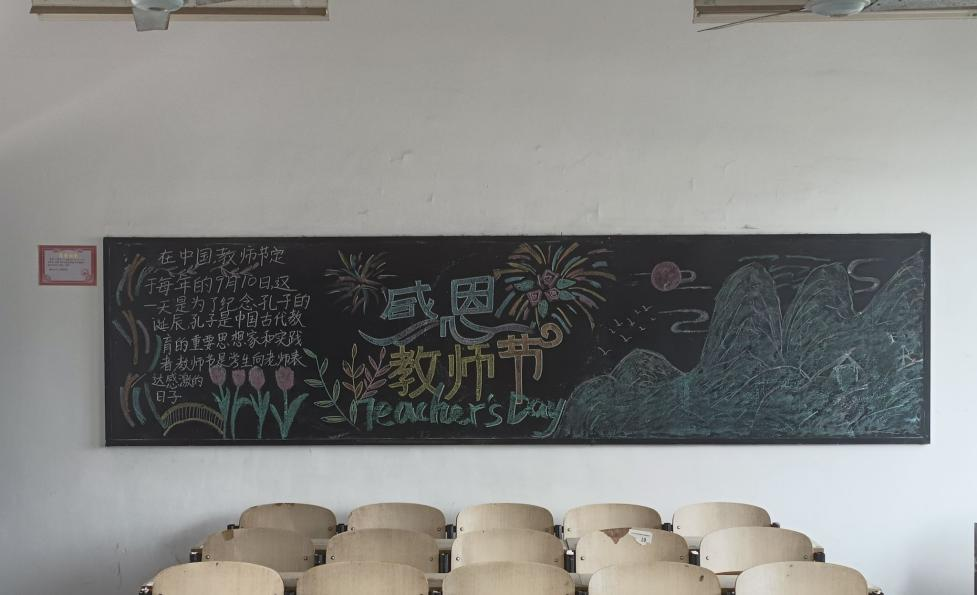 在中国,教师节定
于每年的9月10日,这
一天是为了纪念孔子的
诞辰,孔子是中国古代教
育的重要思想家和实践
者,教师节是学生向老师表
达感激的
日子
感恩
教师节
Teacher's Day